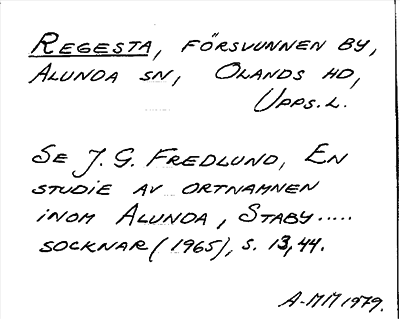 REGESTA, FÖRSVUNNEN BY,
ALUNDA SN, OLANDS HD,
UPPS. L.
SE J. G. FREDLUND, EN
STUDIE AV ORTNAMNEN
INOM ALUNDA, STABY.....
SOCKNAR (1965), S. 13, 44.
A-MM 1979.